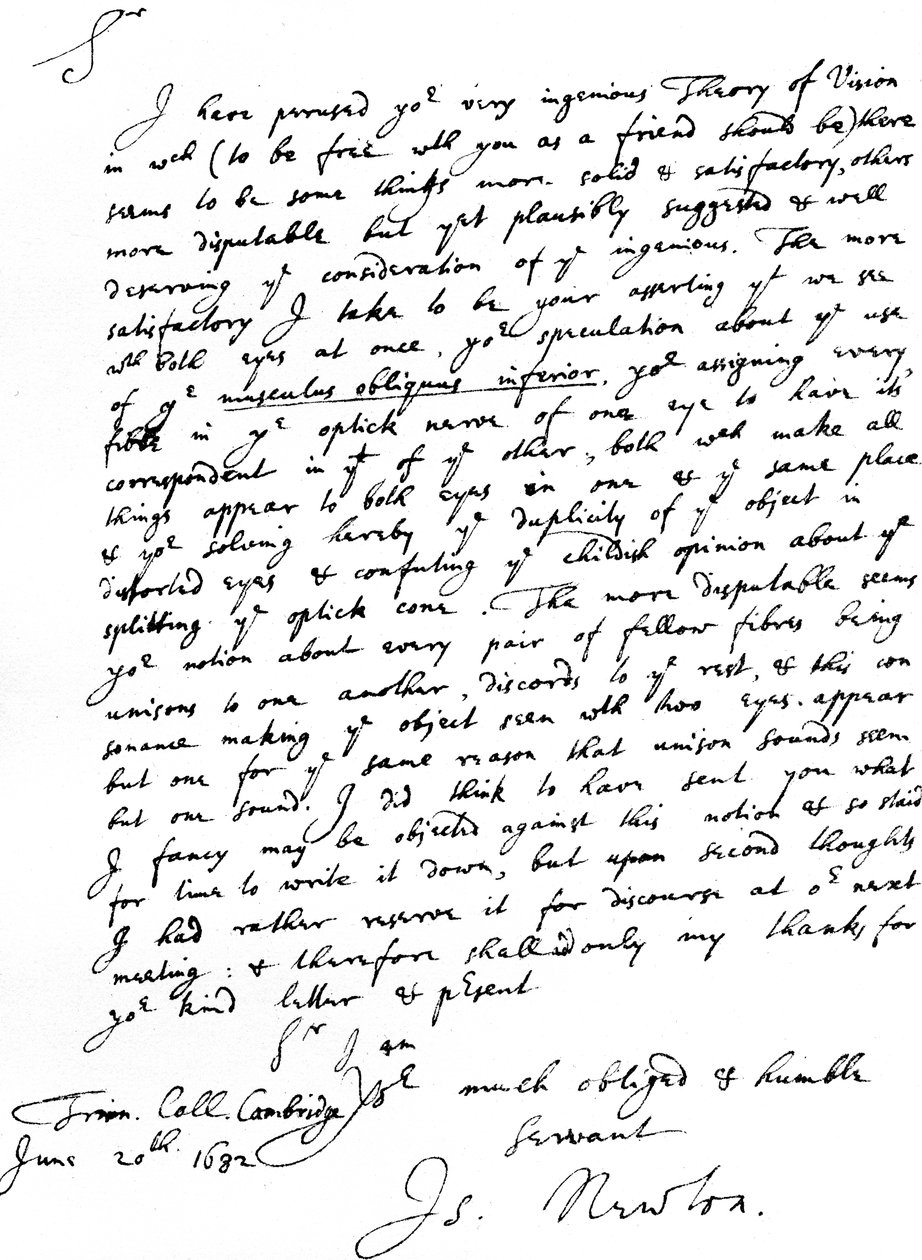 Sr
I have perused yor very ingenious Theory of Vision
in wch (to be free wth you as a friend should be) there
seems to be some things more solid & satisfactory, others
more disputable but yet plausibly suggested & well
deserving ye consideration of ye ingenious. The more
satisfactory I take to be your asserting yt we see
wth both eyes at once, yor speculation about ye use
of ye musculus obliquus inferior, yor assigning every
fibre in ye optick nerve of one eye to have its
correspondent in yt of ye other, both wch make all
things appear to both eyes in one & ye same place
& yor solving hereby ye duplicity of ye object in
distorted eyes & confuting ye childish opinion about ye
splitting ye optick cone. The more disputable seems
yor notion about every pair of fellow fibres being
unisons to one another, discords to ye rest, & this con
sonance making ye object seen wth two eyes appear
but one for ye same reason that unison sounds seem
but one sound. I did think to have sent you what
I fancy may be objected against this notion & so staid
for time to write it down, but upon second thoughts
I had rather reserve it for discourse at or next
meeting: & therefore shall add only my thanks for
yor kind letter & prsent
Sr I am
Yor much obliged & humble
Servant
Trin. Coll. Cambridge
June 20th. 1682
Is. Newton.